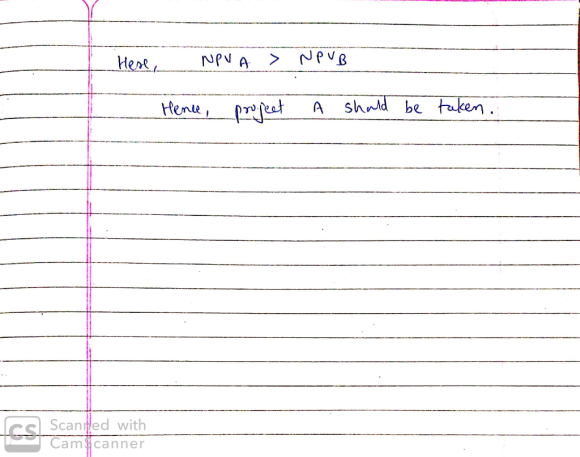 Here, NPV A > NPV B
Hence, project A should be taken.
CS Scanned with
CamScanner